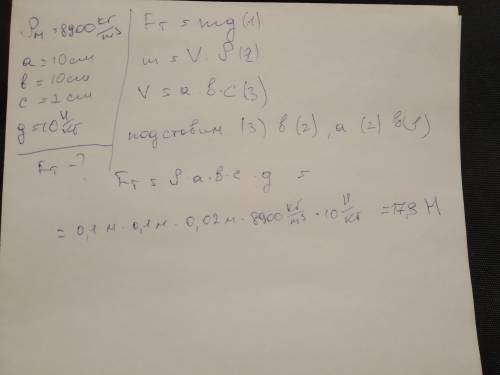 ρм = 8900 кг/м³
a = 10 см
в = 10 см
c = 2 см
g = 10 Н/кг
Fт - ?
Fт = mg (1)
m = V · ρ (2)
V = a · в · c (3)
подставим (3) в (2), а (2) в (1)
Fт = ρ a · в · c · g =
= 0,1 м · 0,1 м · 0,02 м · 8900 кг/м³ · 10 Н/кг = 17,8 Н